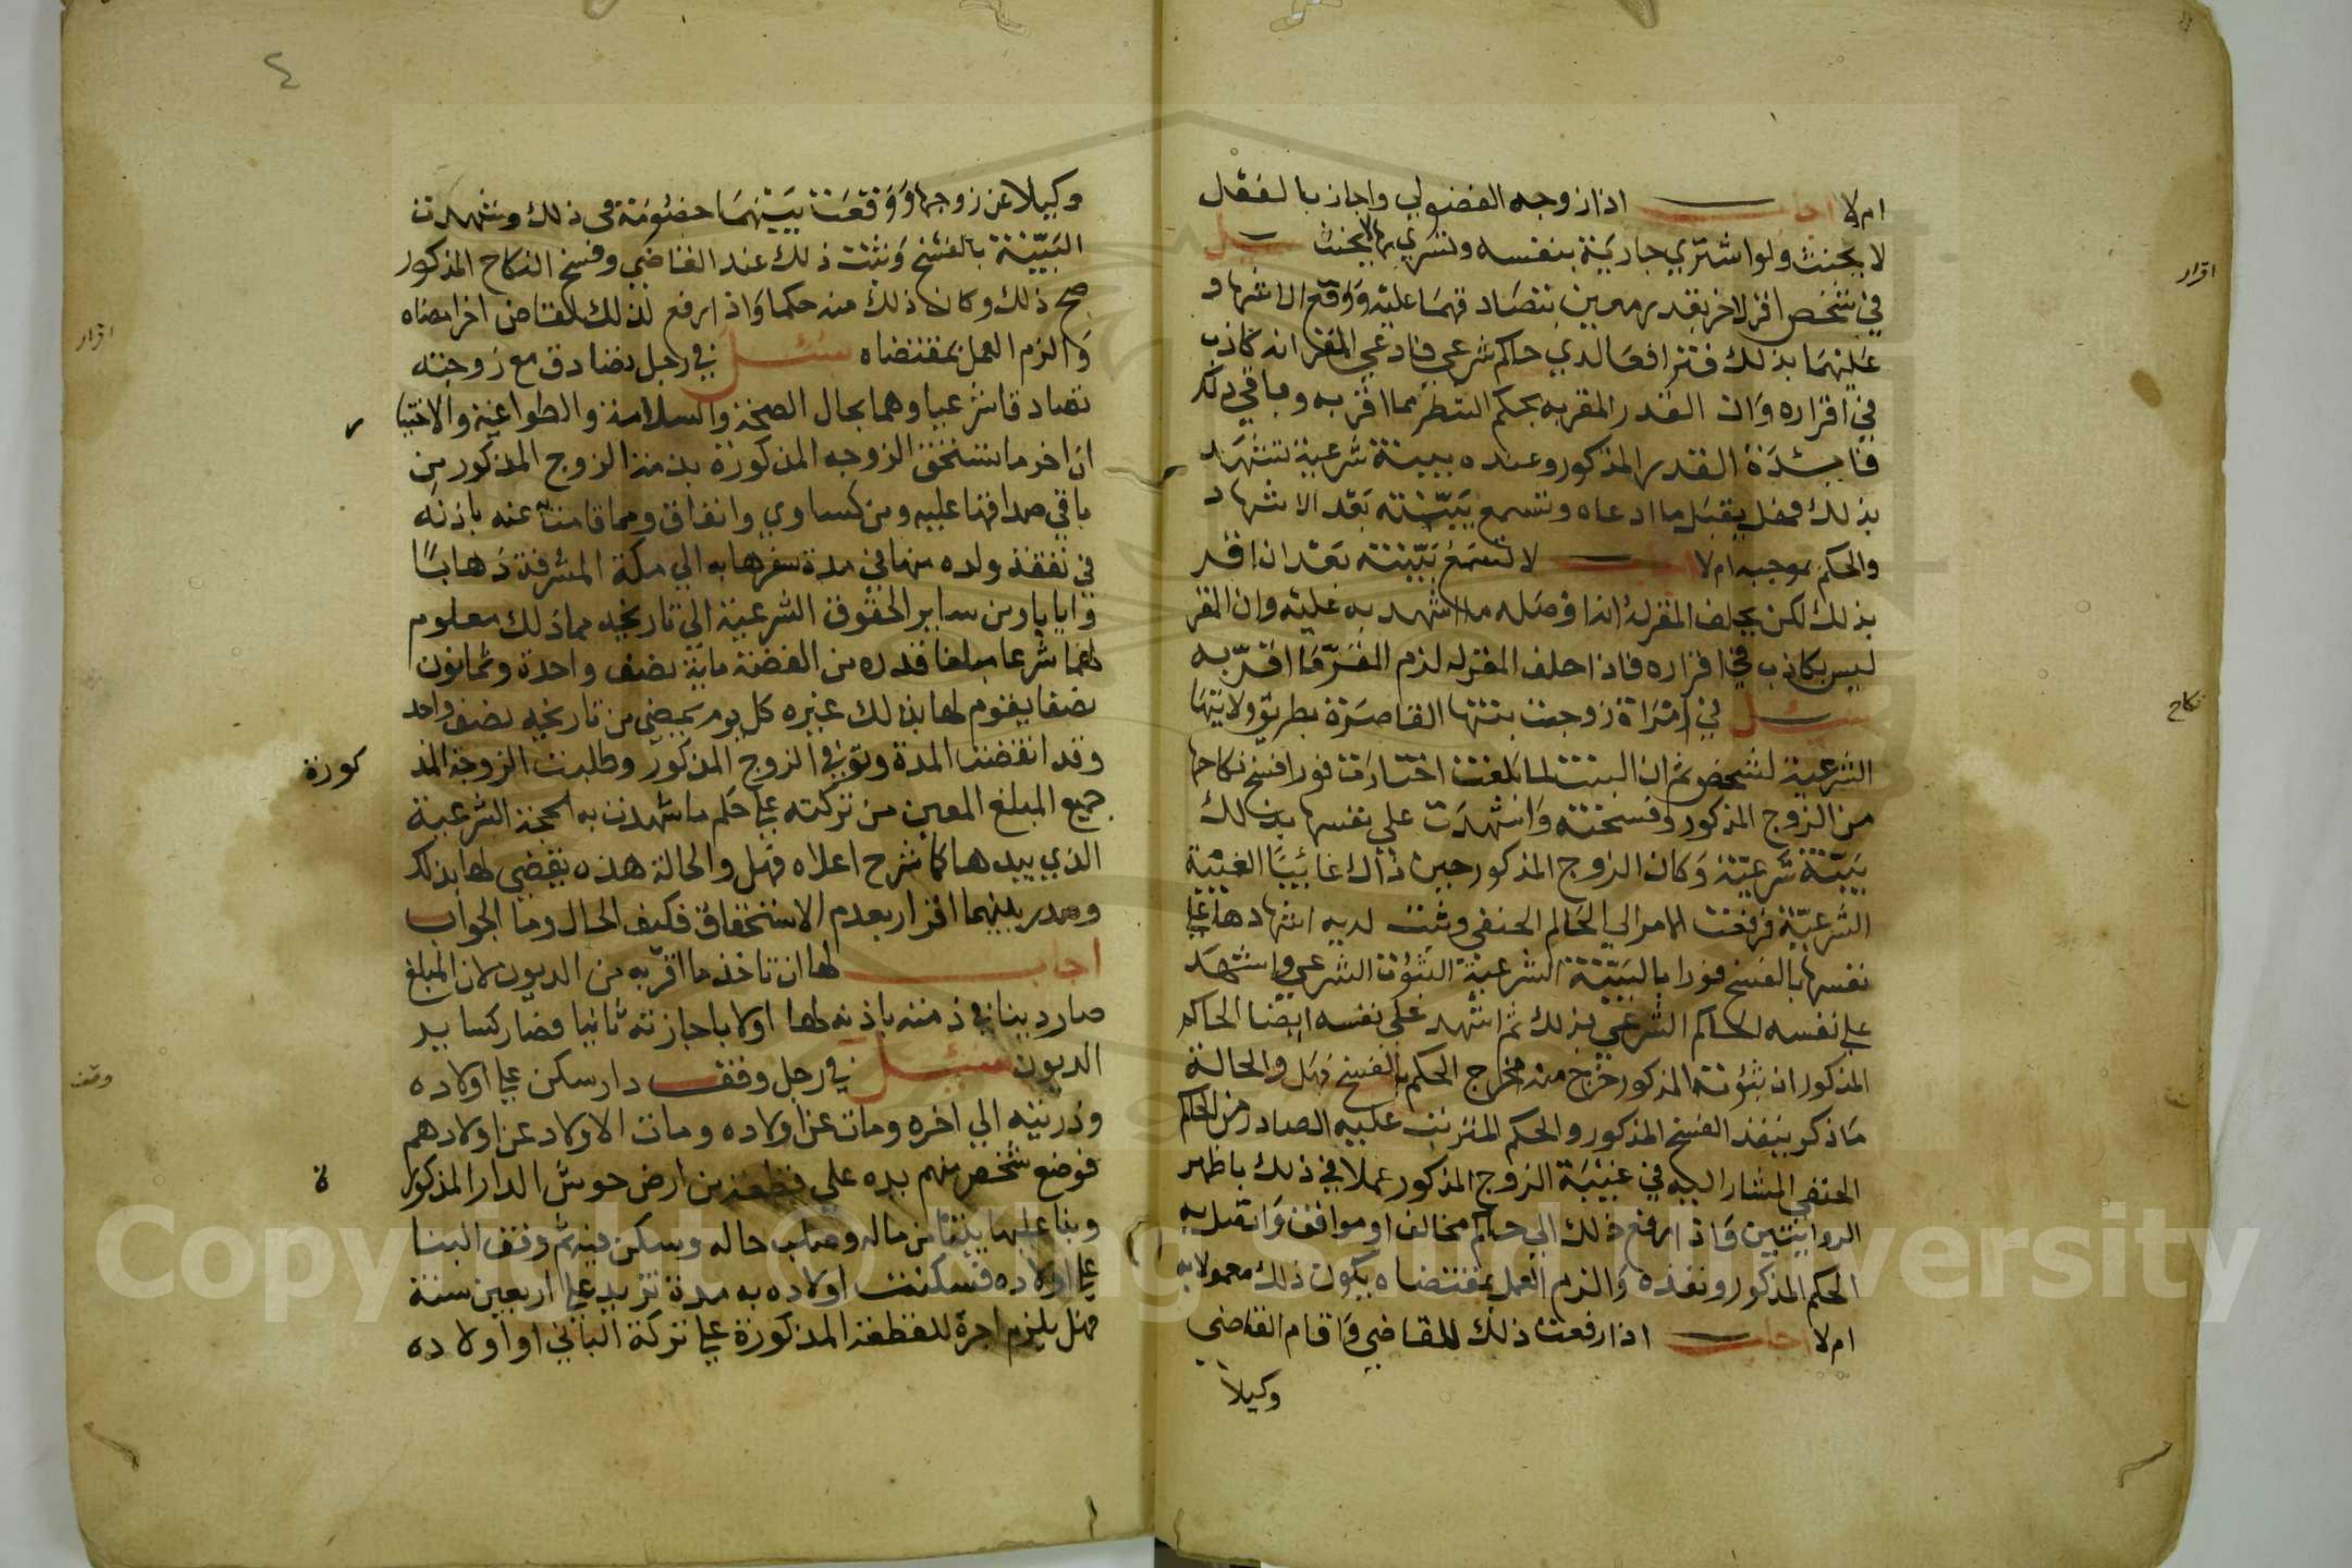 ام لا اجاب اذا زوجه الفضولي واجاز بالفعل
لا يحنث ولو اشتري جارية بنفسه وتسري بها لا يحنث سئل
في شخص اقر لاخر بقدر معين بتصادقهما عليه ووقع الاشهاد
عليهما بذلك فترافعا لدي حاكم شرعي فادعي المقر انه كاذب
في اقراره وان القدر المقر به بحكم الشطر مما اقر به وباقي ذلك
فائدة القدر المذكور وعنده ببينة شرعية تشهد
بذلك فهل يقبل ما ادعاه وتسمع بينته بعد الاشهاد
والحكم بموجبه ام لا اجاب لا تسمع بينته بعد ان اقر
بذلك لكن يحلف المقر له انه اقر له ما اشهد به عليه وان المقر
ليس بكاذب في اقراره فاذا حلف المقر له لزم المقر ما اقر به
سئل في امراة زوجت بنتها القاصرة بطريق ولايتها
الشرعية لشخص ثم ان البنت لما بلغت اختارت فورا فسخ نكاحها
من الزوج المذكور وفسخته واشهدت علي نفسها بذلك
بينة شرعية وكان الزوج المذكور حين ذاك غائبا الغيبة
الشرعية فرفعت الامر الي الحاكم الحنفي وثبت لديه اشهادها علي
نفسها بالفسخ فورا بالبينة الشرعية الثبوت الشرعي واشهد
علي نفسه الحاكم الشرعي بذلك ثم اشهد علي نفسه ايضا الحاكم
المذكور ان ثبوته المذكور خرج منه مخرج الحكم بالفسخ فهل والحالة
ما ذكر ينفذ الفسخ المذكور والحكم المترتب عليه الصادر من الحاكم
الحنفي المشار اليه في غيبة الزوج المذكور عملا في ذلك باظهر
الروايتين واذا رفع ذلك الي حاكم مخالف او موافق واتصل به
الحكم المذكور ونفذه والزم العمل بمقتضاه يكون ذلك معمولا به
ام لا اجاب اذا رفعت ذلك للقاضي واقام القاضي
وكيلا
اقرار
نكاح
٤
وكيلا عن زوجها ووقعت بينهما خصومة في ذلك وشهدت
البينة بالفسخ وثبت ذلك عند القاضي وفسخ النكاح المذكور
صح ذلك وكان ذلك منه حكما واذا رفع لذلك لقاض اخر امضاه
والزم العمل بمقتضاه سئل في رجل تصادق مع زوجته
تصادقا شرعيا وهما بحال الصحة والسلامة والطواعية والاختيا
ر
ان اخر ما تستحق الزوجه المذكورة بذمة الزوج المذكور من
باقي صداقها عليه ومن كساوي وانفاق ومما قامت عنه باذنه
في نفقة ولده منها في مدة سفرها به الي مكة المشرفة ذهابا
وايابا ومن ساير الحقوق الشرعية الي تاريخه مما ذلك معلوم
لهما شرعا مبلغا قدره من الفضة ماية نصف واحدة وثمانون
نصفا يقوم لها بذلك غيره كل يوم يمضي من تاريخه نصف واحد
وقد انقضت المدة وتوفي الزوج المذكور وطلبت الزوجة المذ
كورة
جميع المبلغ المعين من تركته علي حكم ما شهدت به الحجة الشرعية
الذي بيدها كما شرح اعلاه فهل والحالة هذه يقضي لها بذلك
وصدر بينهما اقرار بعدم الاستحقاق فكيف الحال وما الجواب
اجاب لها ان تاخذ ما اقر به من الديون لان المبلغ
صار دينا في ذمته باذنه لها اولا باجازته ثانيا فصار كساير
الديون سئل في رجل وقف دار سكن علي اولاده
وذريته الي اخره ومات عن اولاده ومات الاولاد عن اولادهم
فوضع شخص منهم يده علي قطعة من ارض حوش الدار المذكور
ة
وبنا عليها بناء من ماله وصلب حاله وسكن فيه ثم وقف البنا
علي اولاده فسكنت اولاده به مدة تزيد علي اربعين سنة
فهل يلزم اجرة للقطعة المذكورة علي تركة الباني او اولاده
اقرار
وقف
Copyright © King Saud University